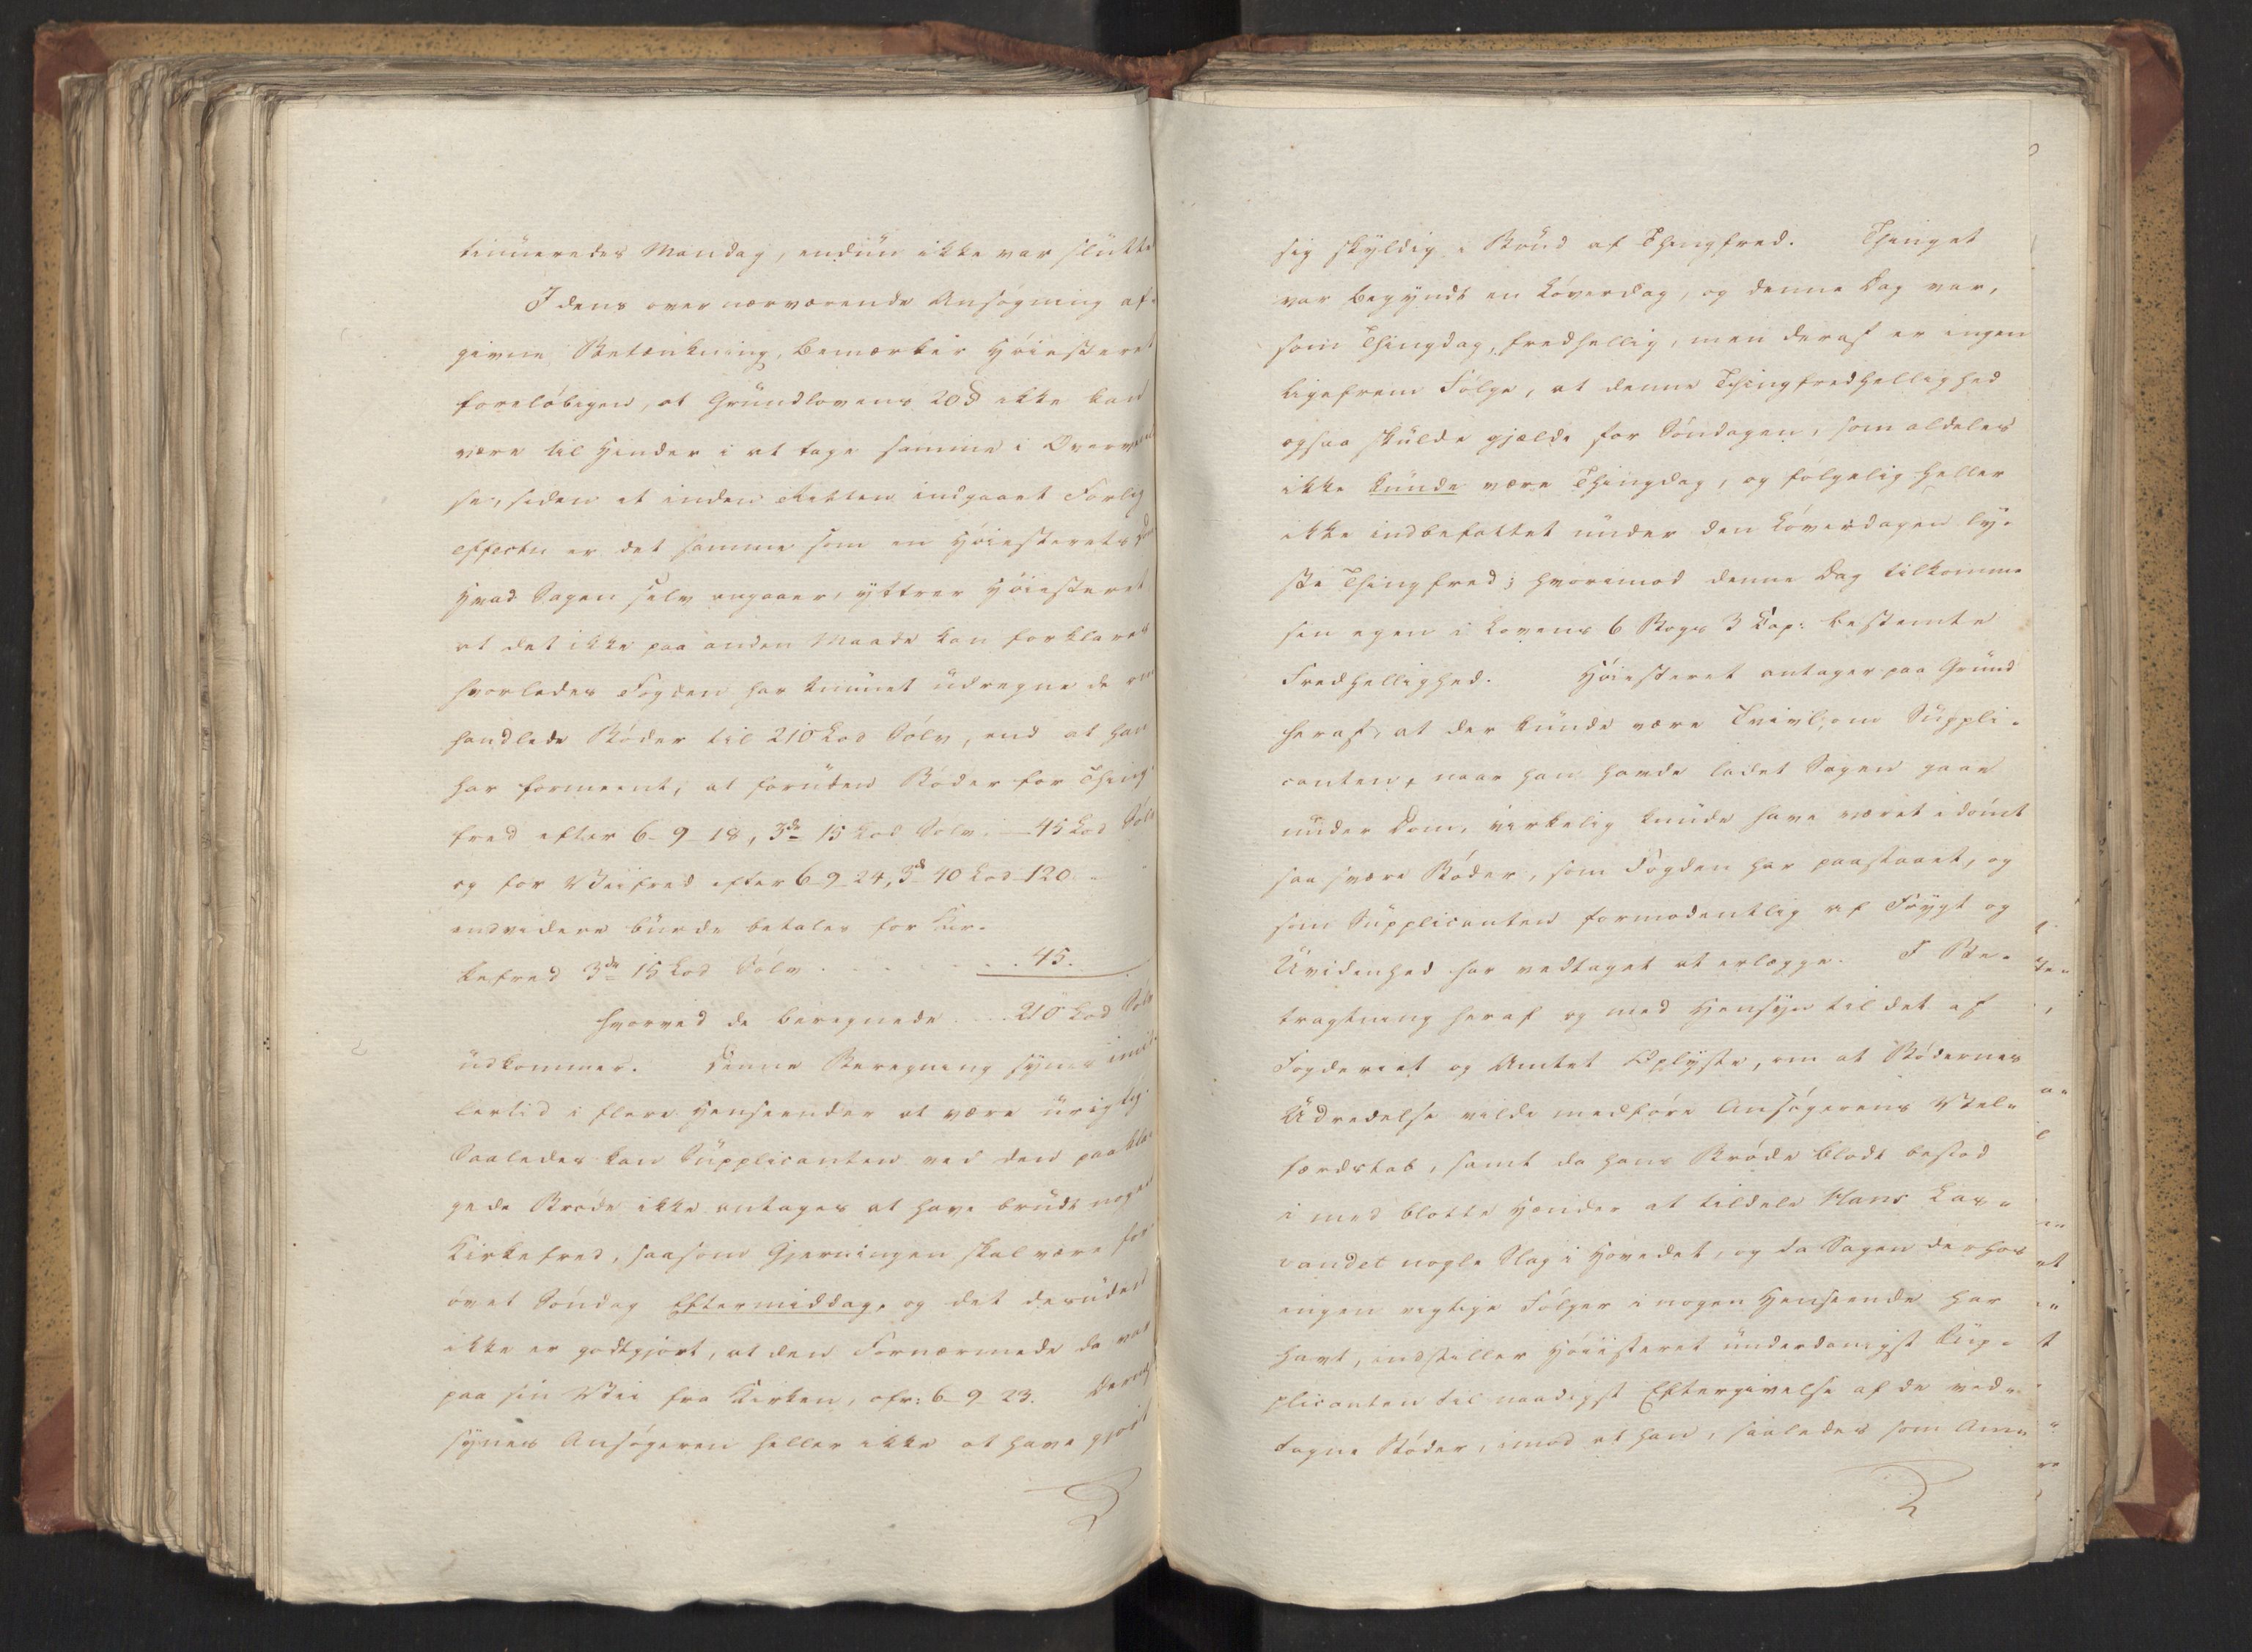 tinueredes Mandag, endnu ikke var sluttet
I dens over nærværende Ansøgning af-
givne Betænkning, bemærker Høiesteret
foreløbigen, at Grundlovens 20§ ikke kan
være til Hinder i at tage samme i Overveiel
se, siden et inden Retten indgaaet Forlig
effectu er det samme som en Høiesterets Dom
Hvad Sagen selv angaaer, yttrer Høiesteret
at det ikke paa anden Maade kan forklares
hvorledes Fogden har kunnet udregne de om
handlede Bøder til 210 Lod Sølv, end at han
har formeent, at foruden Bøder for Thing-
fred efter 6-9-18, 3de 15 Lod Sølv. — 45 Lod Sølv
og for Veifred efter 6-9-24, 3de 40 Lod — 120 "
endvidere burde betales for Kir-
kefred 3de 15 Lod Sølv . . . . . 45.
hvorved de beregnede . . . 210 Lod Sølv
udkommer. Denne Beregning synes imid-
lertid i flere Henseender at være urigtig.
Saaledes kan Supplicanten ved den paakla-
gede Brøde ikke antages at have brudt nogen
Kirkefred, saasom Gjerningen skal være for
øvet Søndag Eftermiddag, og det desuden
ikke er godtgjort, at den Fornærmede da var
paa sin Vei fra Kirken, cfr: 6-9-23. Dernæst
synes Ansøgeren heller ikke at have gjort
sig skyldig i Brud af Thingfred. Thinget
var begyndt en Løverdag, og denne Dag var,
som Thingdag, fredhellig, men deraf er ingen
ligefrem Følge, at denne Thingfredhellighed
ogsaa skulde gjælde for Søndagen, som aldeles
ikke kunde være Thingdag, og følgelig heller
ikke indbefattet under den Løverdagen ly-
ste Thingfred; hvorimod denne Dag tilkomme
sin egen i Lovens 6 Bogs 3 Cap: bestemte
Fredhellighed. Høiesteret antager paa Grund
heraf, at der kunde være Tvivl, om Suppli-
canten, naar han havde ladet Sagen gaae
under Dom, virkelig kunde have været idømt
saa svære Bøder, som Fogden har paastaaet, og
som Supplicanten formodentlig af Frygt og
Uvidenhed har vedtaget at erlægge. I Be-
tragtning heraf og med Hensyn til det af
Fogderiet og Amtet Oplyste, om at Bødernes
Udredelse vilde medføre Ansøgerens Vel-
færdstab, samt da hans Brøde blodt bestod
i med blotte Hænder at tildele Hans Las-
vandet nogle Slag i Hovedet, og da Sagen derhos
ingen vigtige Følger i nogen Henseende har
havt, indstiller Høiesteret underdanigst Sup-
plicanten til naadigst Eftergivelse af de ved-
tagne Bøder, imod at han, saaledes som Am-